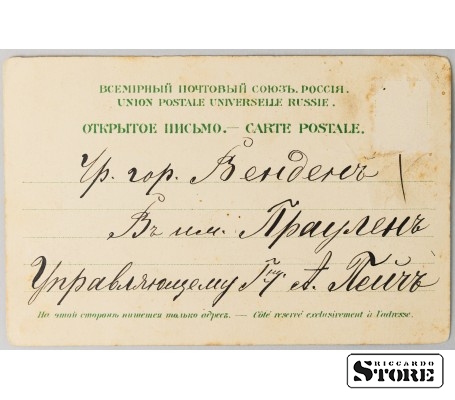 ВСЕМІРНЫЙ ПОЧТОВЫЙ СОЮЗЪ. РОССІЯ.
UNION POSTALE UNIVERSELLE RUSSIE.
ОТКРЫТОЕ ПИСЬМО.— CARTE POSTALE.
Чр. гор. Венденъ
Въ им. Прауленъ
Управляющему Гну. А. Пейчъ
На этой сторонѣ пишется только адресъ. — Côté reservé exclusivement à l'adresse.
RICCARDO
STORE